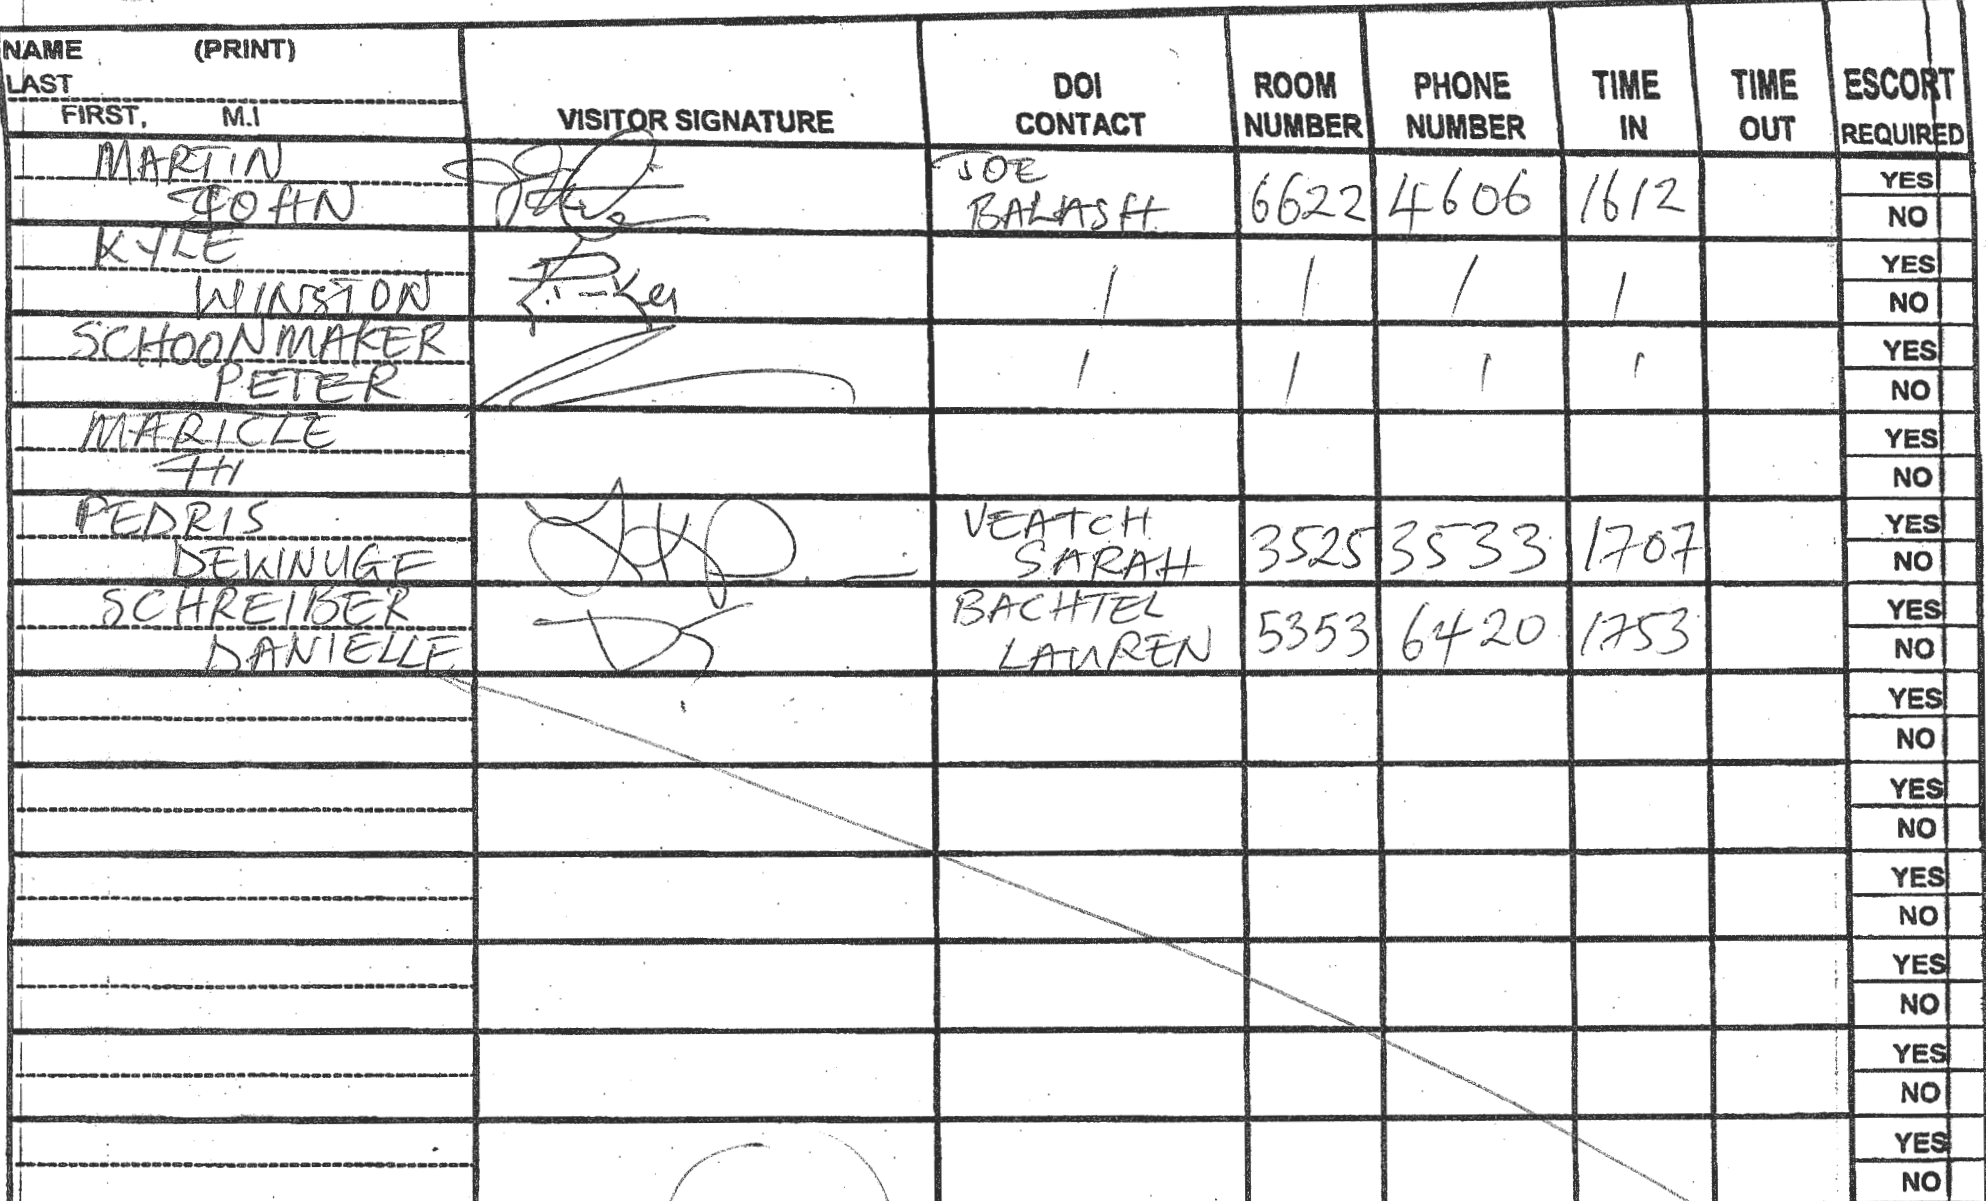 NAME (PRINT)
LAST
FIRST, M.I
VISITOR SIGNATURE
DOI
CONTACT
ROOM
NUMBER
PHONE
NUMBER
TIME
IN
TIME
OUT
ESCORT
REQUIRED
MARTIN
JOHN
JOE
BALASH
6622 4606 1612
YES
NO
KYLE
WINSTON
YES
NO
SCHOONMAKER
PETER
YES
NO
MARICLE
YES
NO
PEDRIS
VEATCH
SARAH
3525 3533 1707
YES
NO
SCHREIBER
DANIELLE
BACHTEL
LAUREN
5353 6420 1753
YES
NO
YES
NO
YES
NO
YES
NO
YES
NO
YES
NO
YES
NO